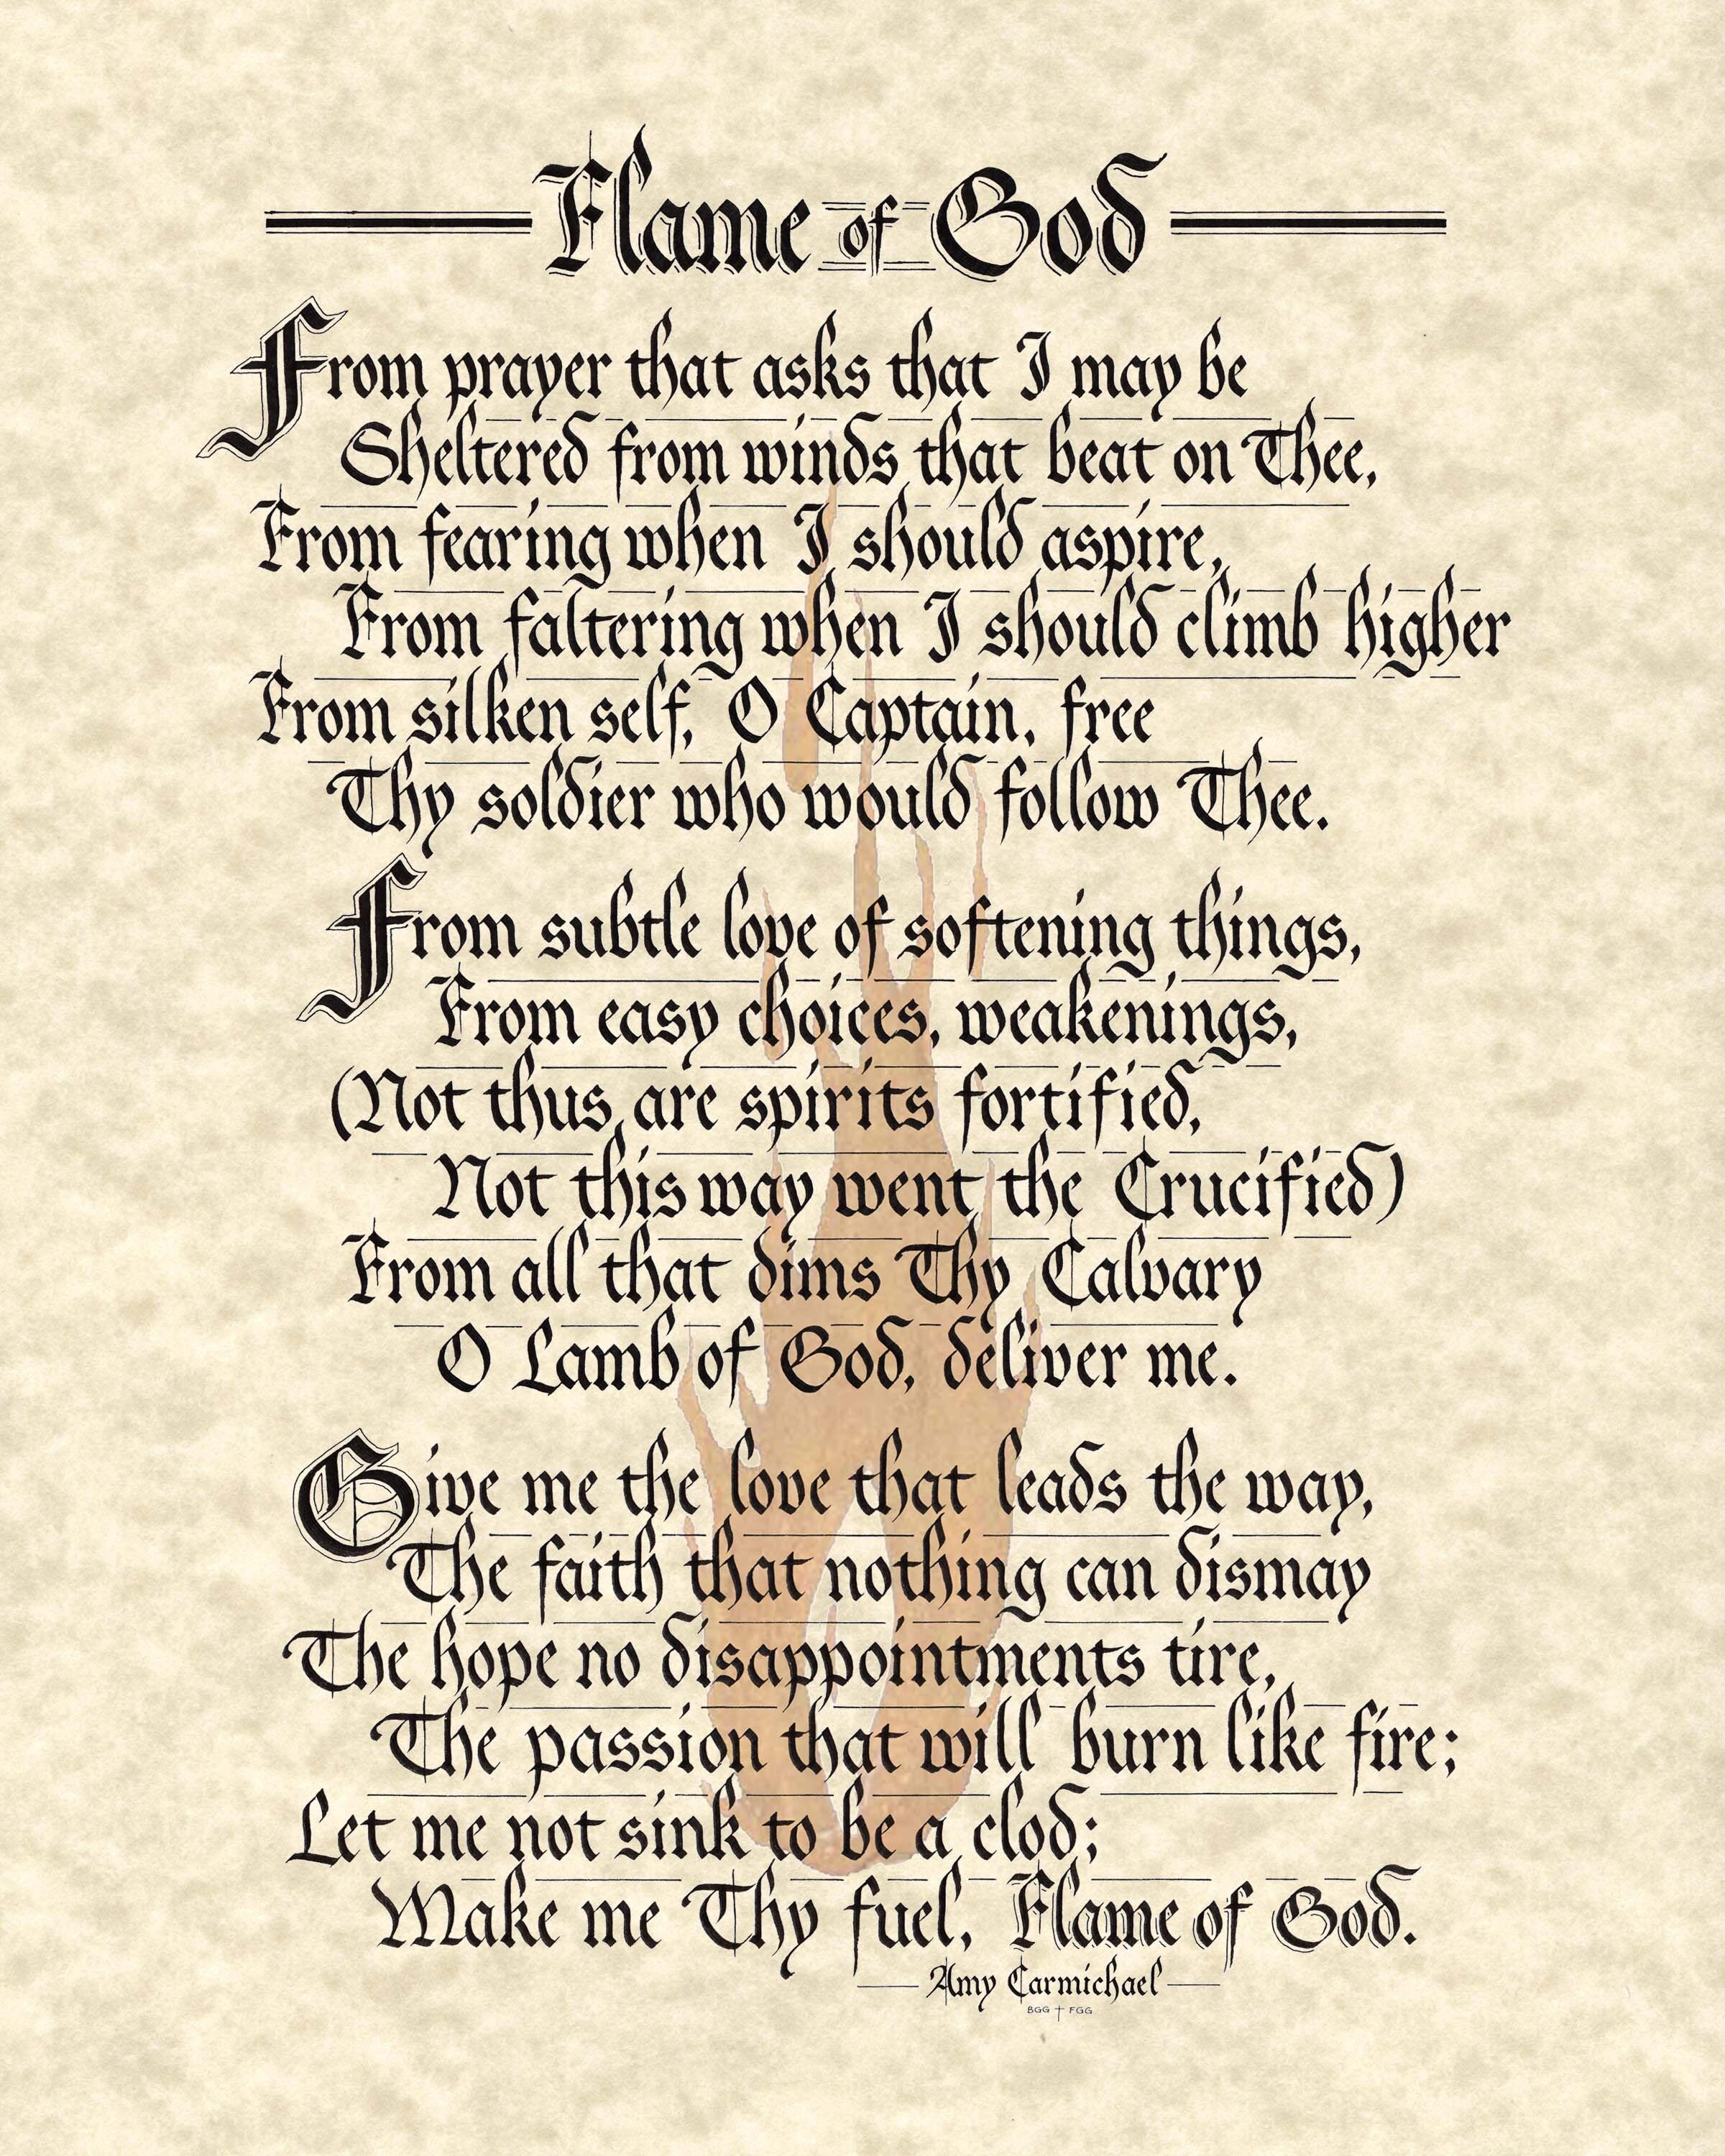 Flame of God
From prayer that asks that I may be
Sheltered from winds that beat on Thee,
From fearing when I should aspire,
From faltering when I should climb higher
From silken self, O Captain, free
Thy soldier who would follow Thee.
From subtle love of softening things,
From easy choices, weakenings,
(Not thus are spirits fortified,
Not this way went the Crucified)
From all that dims Thy Calvary
O Lamb of God, deliver me.
Give me the love that leads the way,
The faith that nothing can dismay
The hope no disappointments tire,
The passion that will burn like fire;
Let me not sink to be a clod;
Make me Thy fuel, Flame of God.
Amy Carmichael
BGG † FGG